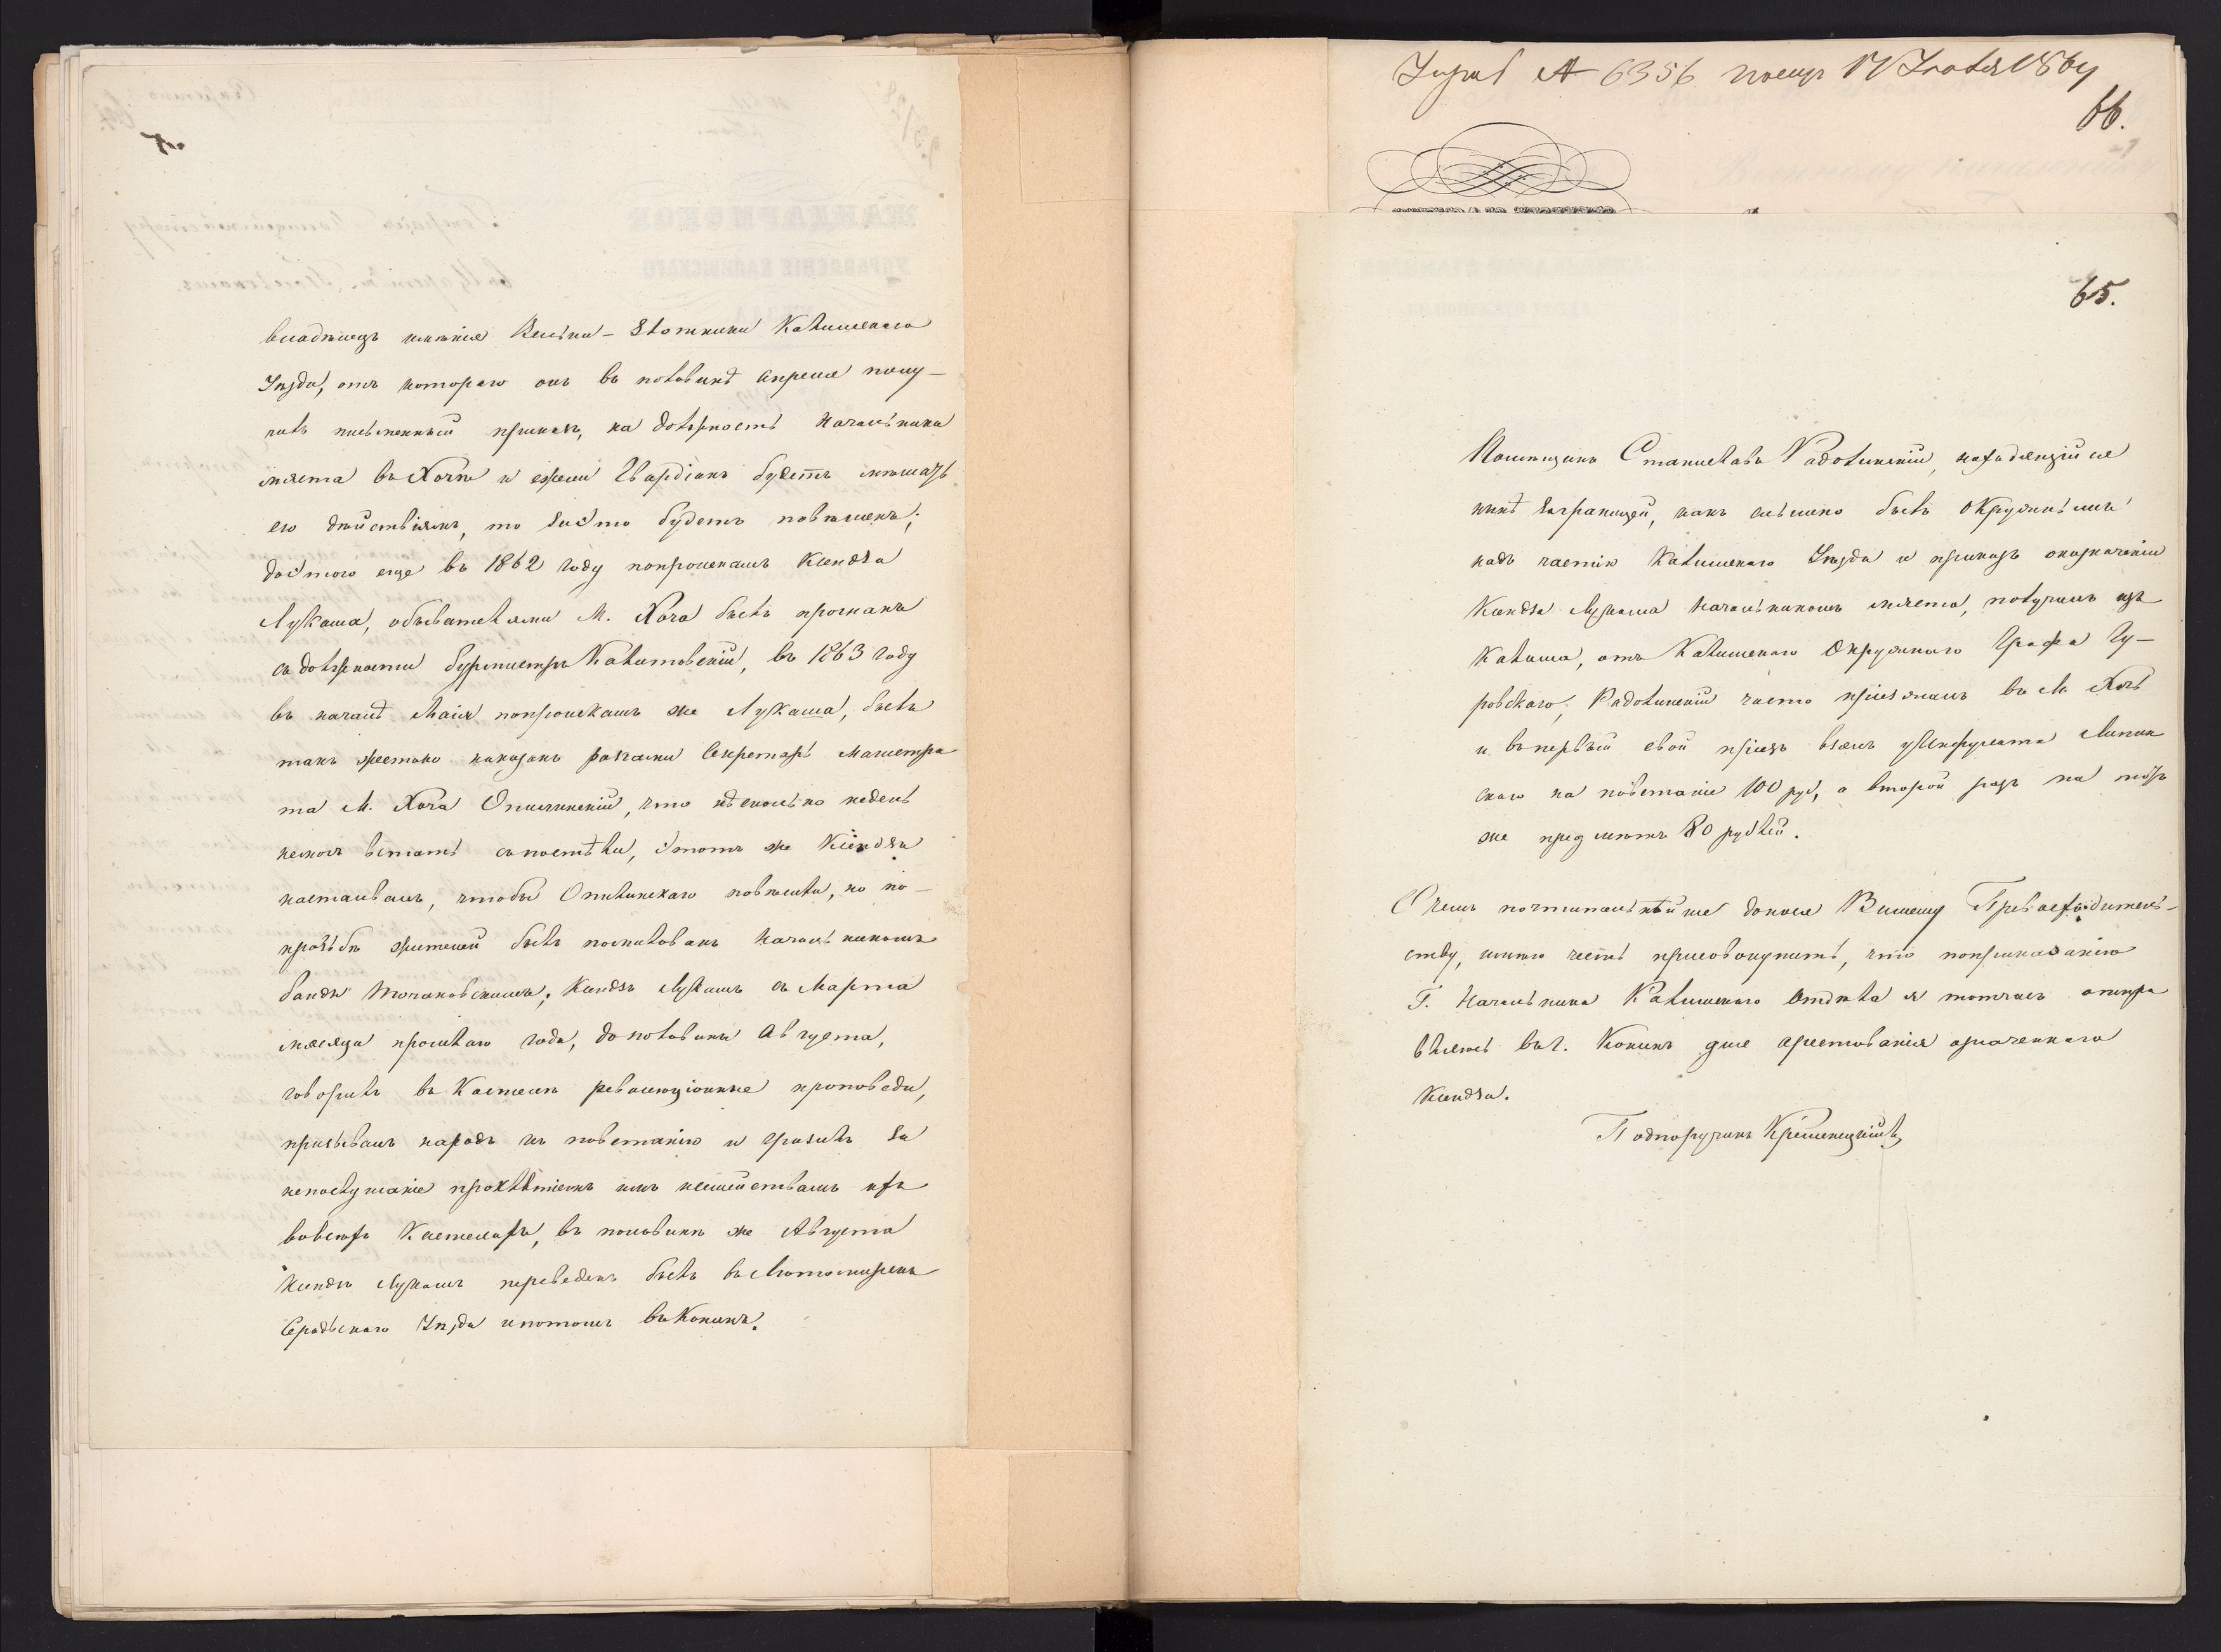 владѣлецъ имѣнія Вельки-Злотники Калишскаго
Уѣзда, отъ котораго онъ въ половинѣ Апреля полу-
чилъ письменный приказъ, на должность Начальника
мѣста въ Хочѣ и ежели Гвардіанъ будетъ мѣшать
его дѣйствіямъ, то за это будетъ повѣшенъ;
до этого еще въ 1862 году по проискамъ Ксендза
Лукаша, обывателями М. Хоча былъ прогнанъ
съ должности бурмистръ Калитовскій, въ 1863 году
въ началѣ Маія по проискамъ же Лукаша, былъ
такъ жестоко наказанъ розгами Секретарь Магистра
та М. Хоча Опилинскій, что нѣсколько недель
немогъ встать съ постѣли, этотъ же Ксіендзъ
настаивалъ, чтобы Опилинскаго повѣсили, но по-
прозьбѣ жителей былъ помилованъ Начальникомъ
банды Точановскимъ; Ксендзъ Лукашъ съ Марта
мѣсяца прошлаго года, до половины Августа,
говорилъ въ Костелѣ революціонные проповеди,
призывалъ народъ къ повстанію и грозилъ за
непослушаніе проклѣтіемъ
вовсехъ Костелахъ, въ половинѣ же Августа
Ксендзъ Лукашъ переведенъ былъ въ Лютомирскъ
Серадзскаго Уѣзда и потомъ въ Конинъ.
№ 6356 17 1864
66.
65.
Помѣщикъ Станиславъ Радолинскій, находящійся
нынѣ заграницей, какъ слышно былъ Окружнымъ
надъ частію Калишскаго Уѣзда и приказъ о назначеніи
Ксендза Лукаша Начальникомъ мѣста, получилъ изъ
Калиша, отъ Калишскаго Окружнаго Графа Гу-
ровскаго; Радолинскій часто пріезжалъ въ М. Хочь
и въ первый свой пріездъ взялъ у Липин
скаго на повстаніе 100 руб, а второй разъ на тотъ
же предметъ 80 рублей.
О чемъ почтительнѣйше донося Вашему Превосходитель-
ству, имѣю честь присовокупить, что по приказанію
Г. Начальника Калишскаго Отдѣла я тотчасъ отпра
вляюсь въ г. Конинъ для арестованія означеннаго
Ксендза.
Подпоручикъ